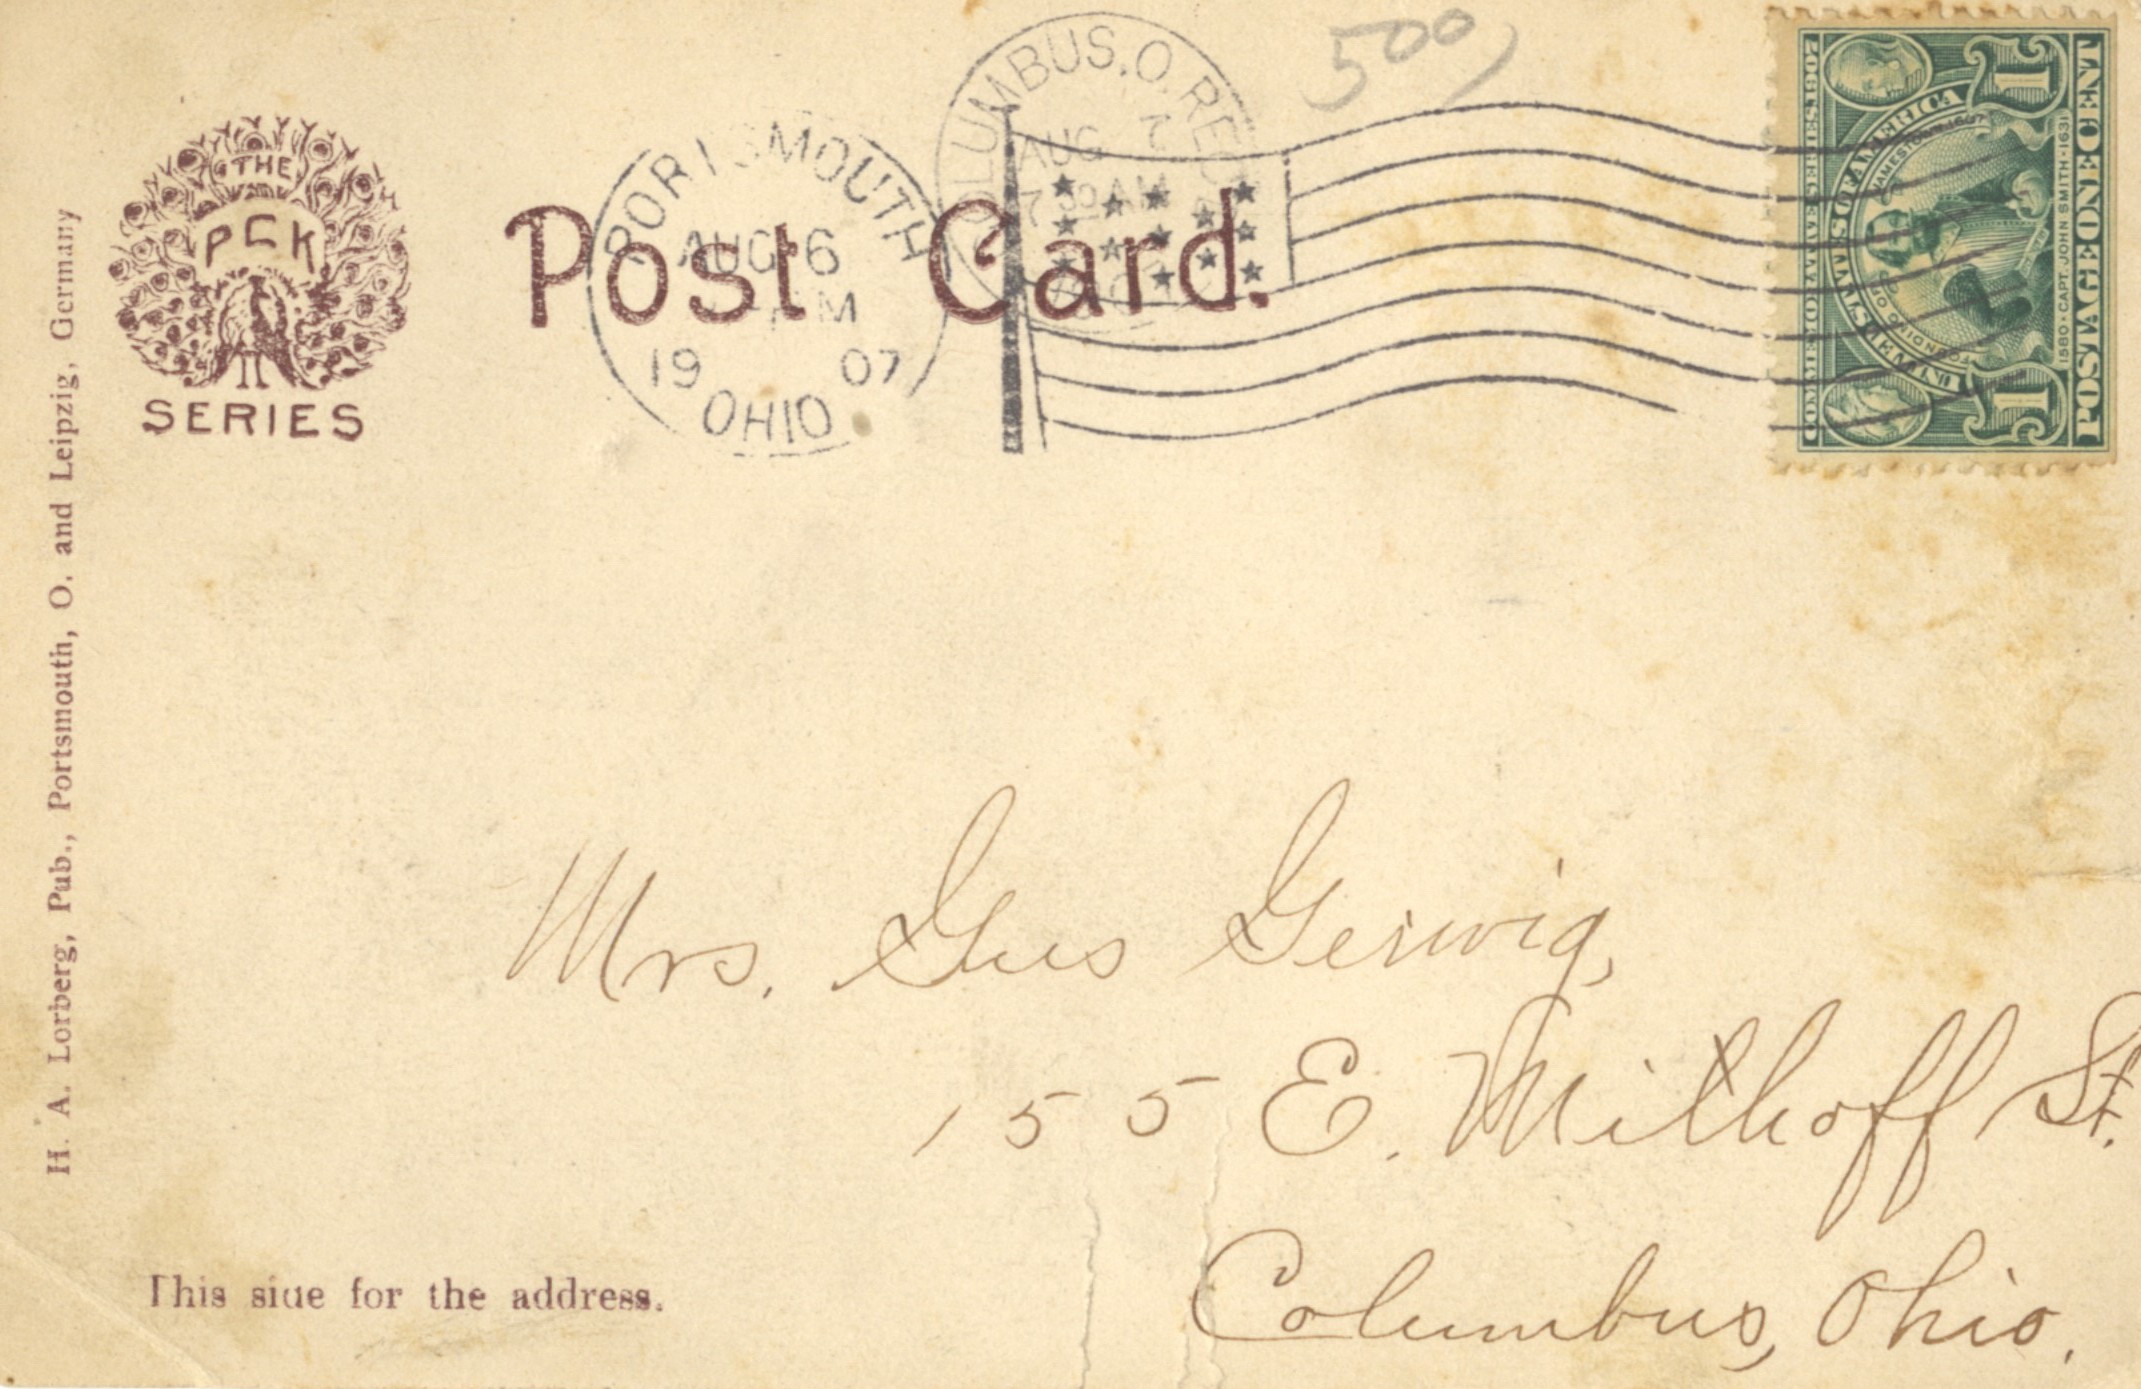 THE
PCK
SERIES
H. A. Lorberg, Pub., Portsmouth, O. and Leipzig, Germany
Post Card.
PORTSMOUTH
AUG 6
M
19 07
OHIO
COLUMBUS, O. REC'D
AUG 7
7 30 AM
500
COMMEMORATIVE SERIES 1907
UNITED STATES OF AMERICA
FOUNDING OF JAMESTOWN 1607
1580 · CAPT. JOHN SMITH · 1631
POSTAGE ONE CENT
1 1
Mrs. Gus Gerwig,
155 E. Mithoff St.
Columbus, Ohio.
This side for the address.